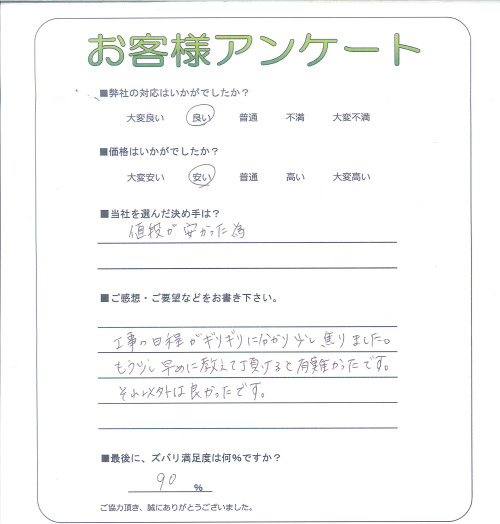 お客様アンケート
■弊社の対応はいかがでしたか？
大変良い　良い　普通　不満　大変不満
■価格はいかがでしたか？
大変安い　安い　普通　高い　大変高い
■当社を選んだ決め手は？
値段が安かった為
■ご感想・ご要望などをお書き下さい。
工事の日程がギリギリに分かり少し焦りました。
もう少し早めに教えて頂けると有難かったです。
それ以外は良かったです。
■最後に、ズバリ満足度は何％ですか？
90 %
ご協力頂き、誠にありがとうございました。